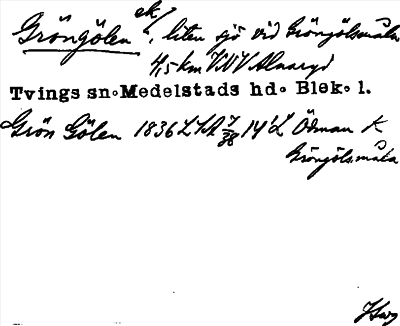 Gröngölen ek/, liten sjö vid Gröngölsmåla
4,5 km VNV Alnaryd
Tvings sn. Medelstads hd. Blek. l.
Grön Gölen 1836 LSA 7/38 14 L Ödman K
Gröngölsmåla